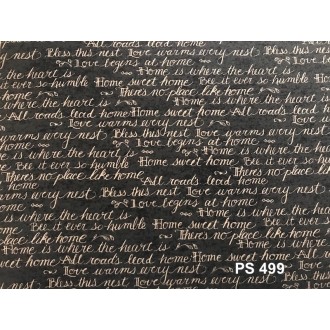 All roads lead home
Bless this nest Love warms every nest
Love begins at home
Home is where the heart is
Home is where the heart is Bee it ever so humble
Bee it ever so humble Home sweet home
There's no place like home
Home is where the heart is
All roads lead home Home sweet home All roads lead home
Love warms every nest Bless this nest Love warms every nest
Love begins at home
Home is where the heart is
Home sweet home Bee it ever so humble
There's no place like home
All roads lead home Home sweet home
Bless this nest Love warms every nest
Love begins at home
Home is where the heart is
Home is where the heart is Bee it ever so humble
Bee it ever so humble Home sweet home
There's no place like home
Home is where the heart is
All roads lead home Home sweet home All roads lead home
Love warms every nest
PS 499